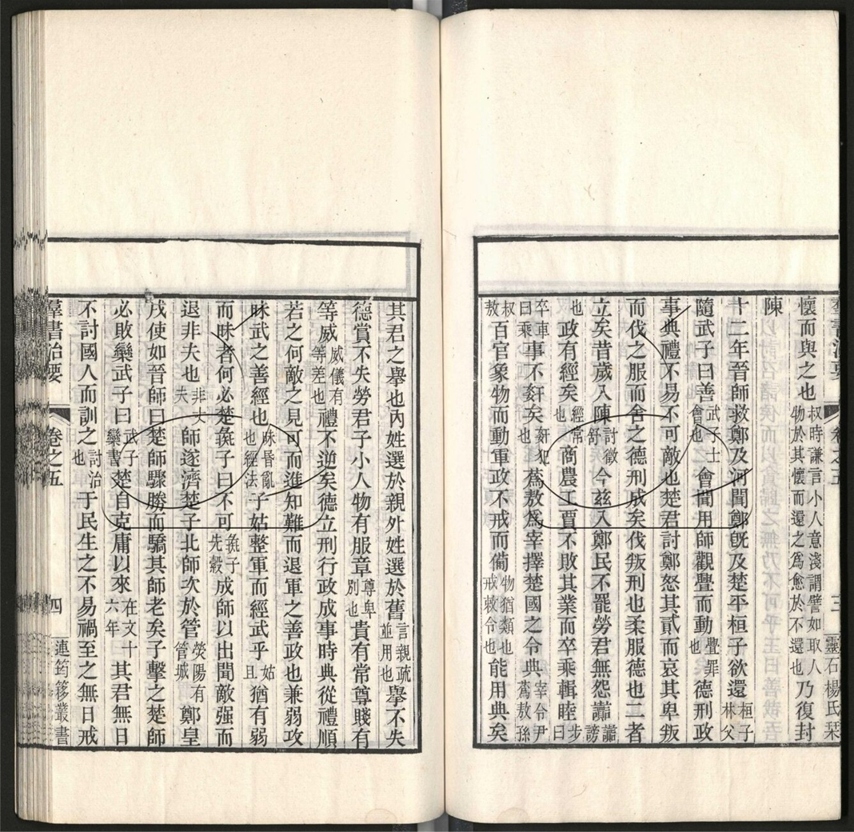 羣書治要 卷之五 三 靈石楊氏栞
懷而與之也叔時謙言小人意淺謂譬如取人物於其懷而還之爲愈於不還也乃復封
陳
十二年晉師救鄭及河聞鄭旣及楚平桓子欲還桓子林父
隨武子曰善武子士會也會聞用師觀釁而動釁罪也德刑政
事典禮不易不可敵也楚君討鄭怒其貳而哀其卑叛
而伐之服而舍之德刑成矣伐叛刑也柔服德也二者
立矣昔歲入陳討徵舒今茲入鄭民不罷勞君無怨讟讟謗
也政有經矣經常也商農工賈不敗其業而卒乘輯睦步曰
卒車曰乘事不奸矣奸犯蒍敖爲宰擇楚國之令典宰令尹蒍敖孫
叔敖百官象物而動軍政不戒而備物猶類也戒敕令也能用典矣
其君之舉也內姓選於親外姓選於舊言親疏並用也舉不失
德賞不失勞君子小人物有服章尊卑別也貴有常尊賤有
等威威儀有等差也禮不逆矣德立刑行政成事時典從禮順
若之何敵之見可而進知難而退軍之善政也兼弱攻
昧武之善經也昧昏亂也經法也子姑整軍而經武乎姑且猶有弱
而昧者何必楚彘子曰不可彘子先縠成師以出聞敵强而
退非夫也非丈夫師遂濟楚子北師次於管滎陽有管城鄭皇
戌使如晉師曰楚師驟勝而驕其師老矣子擊之楚師
必敗欒武子曰武子欒書楚自克庸以來在文十六年其君無日
不討國人而訓之討治也于民生之不易禍至之無日戒
羣書治要 卷之五 四 連筠簃叢書